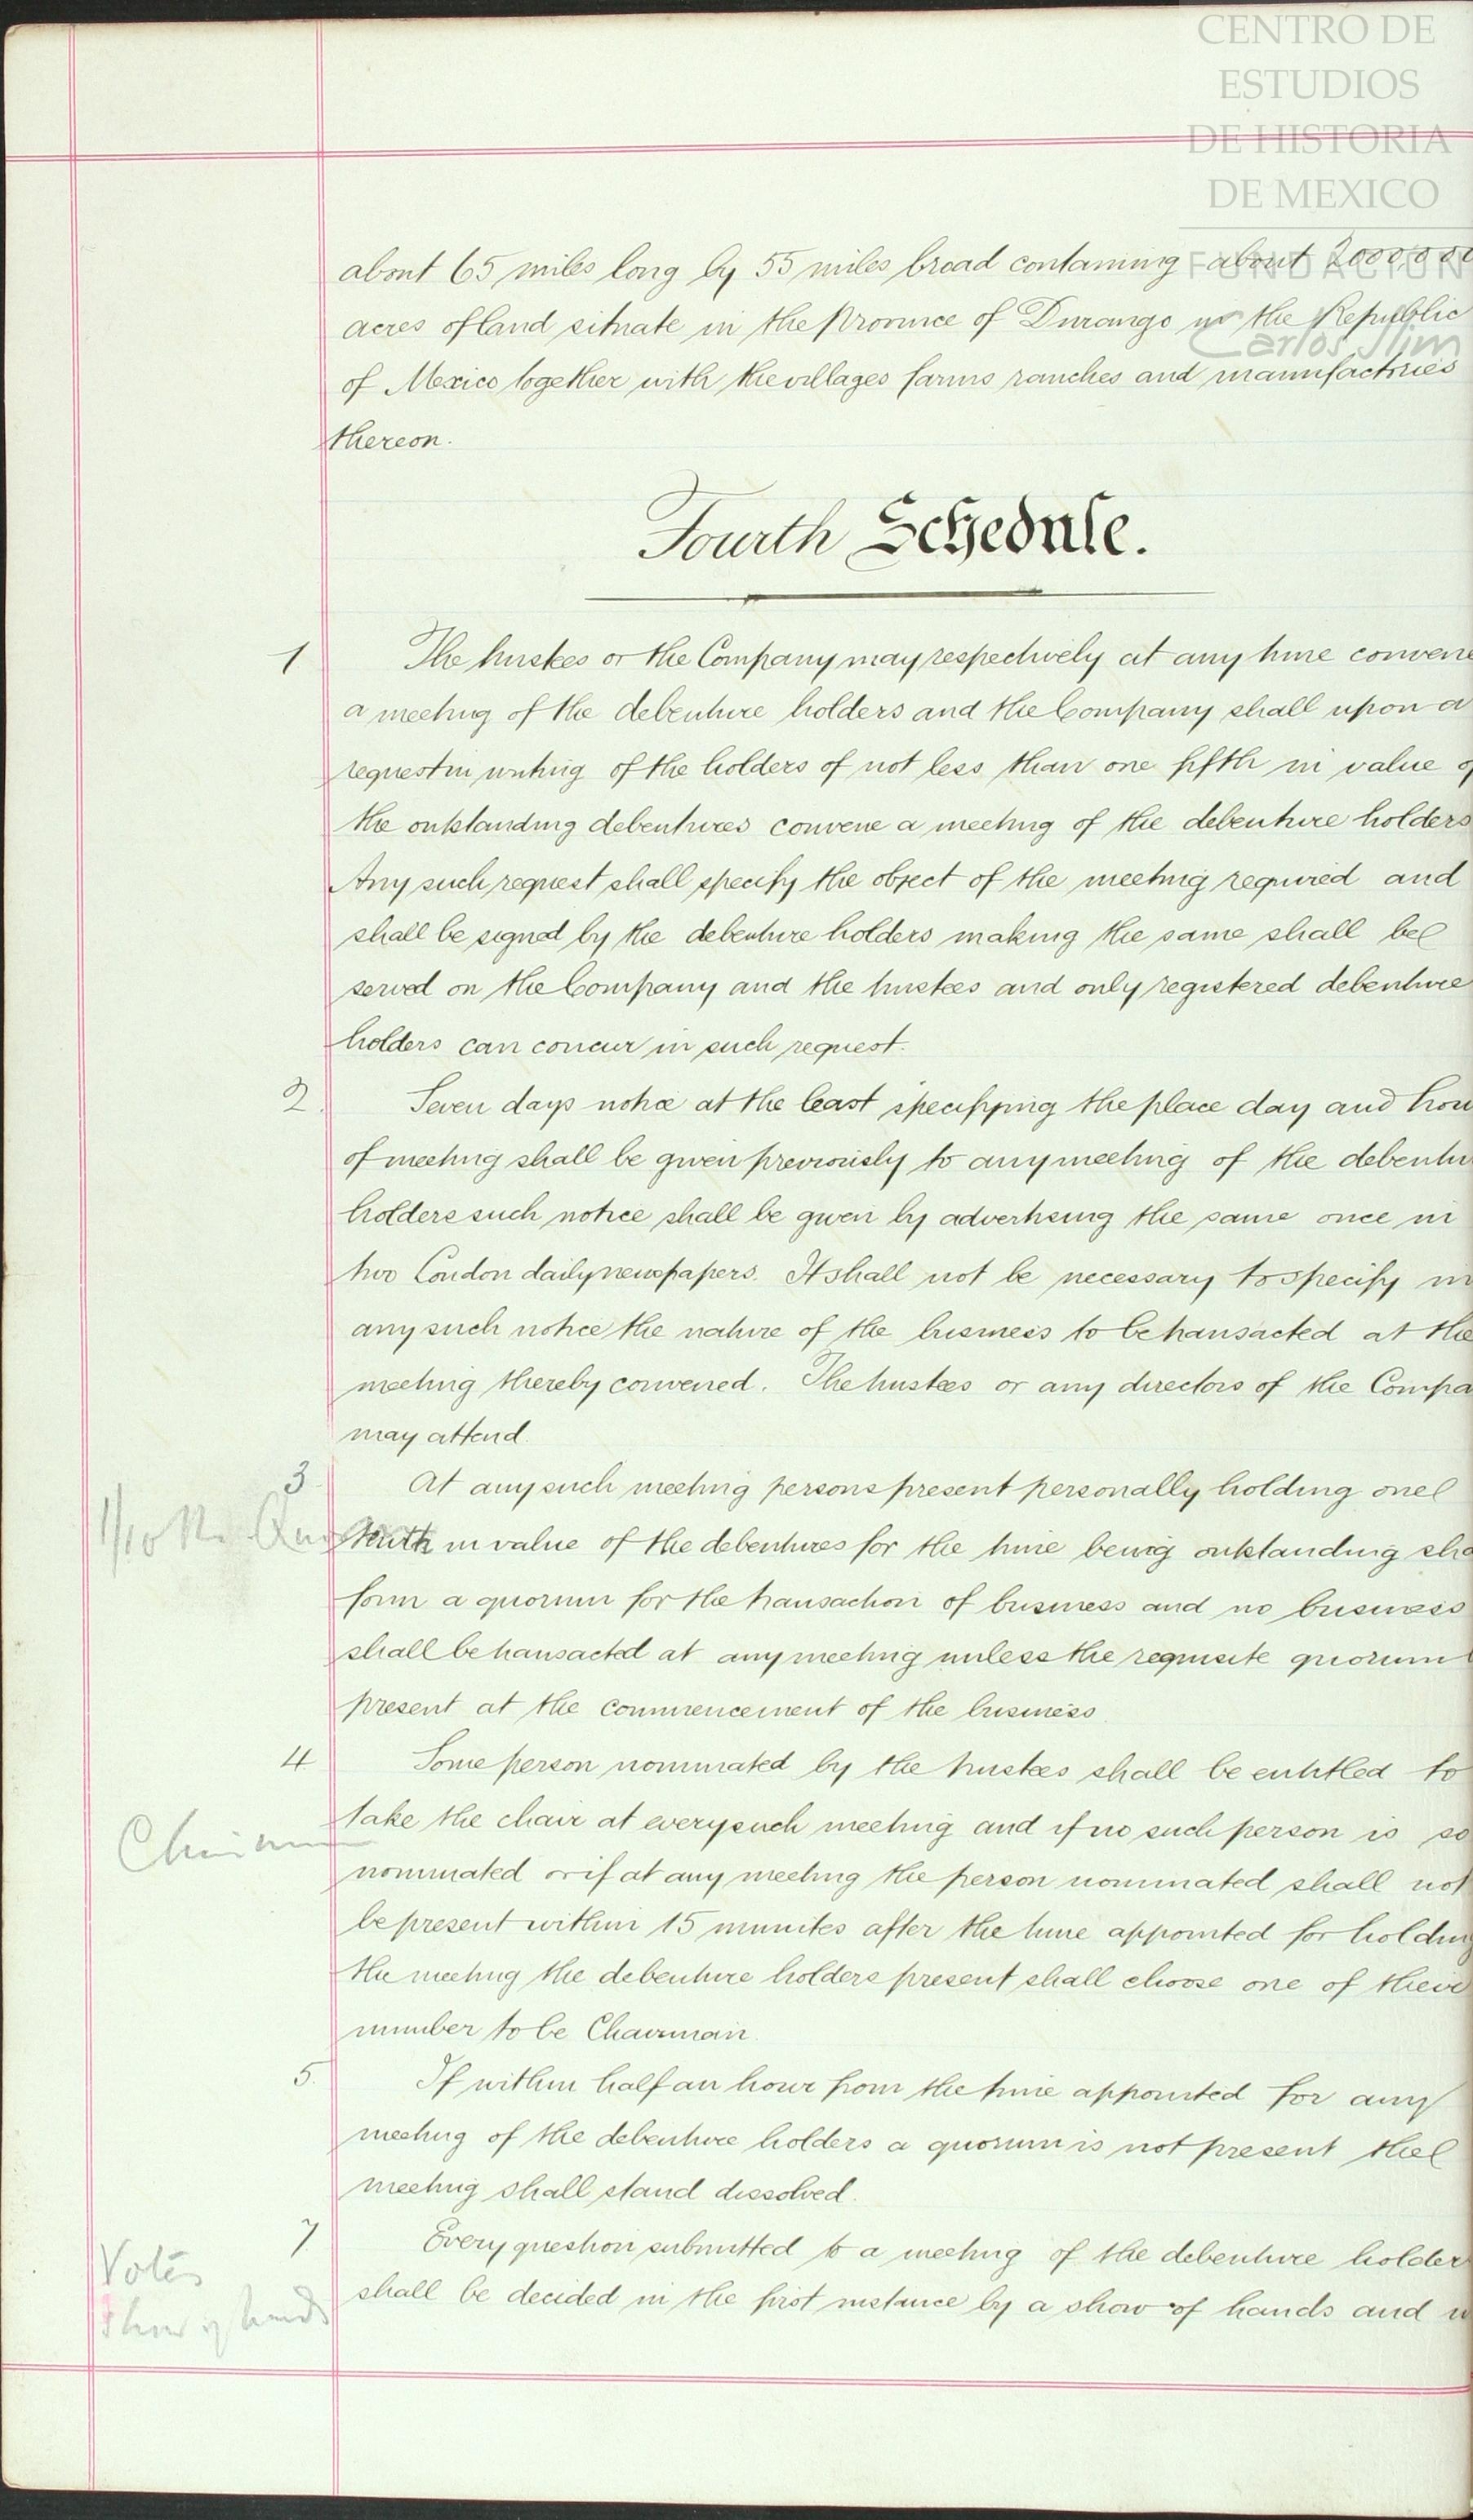 CENTRO DE
ESTUDIOS
DE HISTORIA
DE MEXICO
FUNDACIÓN
Carlos Slim
about 65 miles long by 55 miles broad containing about 2000,000
acres of land situate in the Province of Durango in the Republic
of Mexico together with the villages farms ranches and manufactories
thereon.
Fourth Schedule.
1 The trustees or the Company may respectively at any time convene
a meeting of the debenture holders and the Company shall upon a
request in writing of the holders of not less than one fifth in value of
the outstanding debentures convene a meeting of the debenture holders
Any such request shall specify the object of the meeting required and
shall be signed by the debenture holders making the same shall be
served on the Company and the trustees and only registered debenture
holders can concur in such request.
2. Seven days notice at the least specifying the place day and hou
of meeting shall be given previously to any meeting of the debentu
holders such notice shall be given by advertising the same once in
two London daily newspapers. It shall not be necessary to specify in
any such notice the nature of the business to be transacted at the
meeting thereby convened. The trustees or any directors of the Compa
may attend.
3. At any such meeting persons present personally holding one
1/10 th
tenth in value of the debentures for the time being outstanding sha
form a quorum for the transaction of business and no business
shall be transacted at any meeting unless the requisite quorum
present at the commencement of the business.
4 Some person nominated by the trustees shall be entitled to
take the chair at every such meeting and if no such person is so
Chairman
nominated or if at any meeting the person nominated shall not
be present within 15 minutes after the time appointed for holding
the meeting the debenture holders present shall choose one of their
number to be Chairman.
5. If within half an hour from the time appointed for any
meeting of the debenture holders a quorum is not present the
meeting shall stand dissolved.
7 Every question submitted to a meeting of the debenture holder
Votes
shall be decided in the first instance by a show of hands and
Show of hands